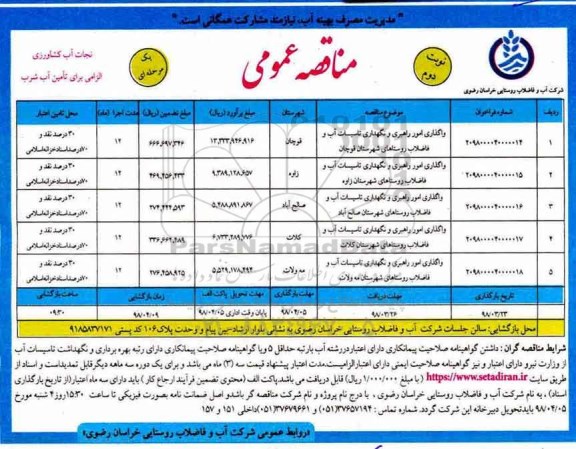 " مدیریت مصرف بهینه آب، نیازمند مشارکت همگانی است. "
نجات آب کشاورزی
الزامی برای تأمین آب شرب
یک مرحله ای
مناقصه عمومی
نوبت دوم
شرکت آب و فاضلاب روستایی خراسان رضوی
ردیف شماره فراخوان موضوع مناقصه شهرستان مبلغ برآورد (ریال) مبلغ تضمین (ریال) مدت اجرا (ماه) محل تامین اعتبار
۱ ۲۰۹۸۰۰۰۰۴۰۰۰۰۰۱۴ واگذاری امور راهبری و نگهداری تاسیسات آب و فاضلاب روستاهای شهرستان قوچان قوچان ۱۳,۳۳۳,۹۴۶,۹۱۶ ۶۶۶,۶۹۷,۳۴۶ ۱۲ ۳۰درصد نقد و ۷۰درصداسنادخزانه‌اسلامی
۲ ۲۰۹۸۰۰۰۰۴۰۰۰۰۰۱۵ واگذاری امور راهبری و نگهداری تاسیسات آب و فاضلاب روستاهای شهرستان زاوه زاوه ۹,۳۸۹,۱۲۸,۶۵۷ ۴۶۹,۴۵۶,۴۳۳ ۱۲ ۳۰درصد نقد و ۷۰درصداسنادخزانه‌اسلامی
۳ ۲۰۹۸۰۰۰۰۴۰۰۰۰۰۱۶ واگذاری امور راهبری و نگهداری تاسیسات آب و فاضلاب روستاهای شهرستان صالح آباد صالح آباد ۵,۴۸۸,۸۹۱,۸۶۷ ۲۷۴,۴۴۴,۵۹۳ ۱۲ ۳۰درصد نقد و ۷۰درصداسنادخزانه‌اسلامی
۴ ۲۰۹۸۰۰۰۰۴۰۰۰۰۰۱۷ واگذاری امور راهبری و نگهداری تاسیسات آب و فاضلاب روستاهای شهرستان کلات کلات ۶,۷۳۳,۲۸۹,۷۷۶ ۳۳۶,۶۶۴,۴۸۹ ۱۲ ۳۰درصد نقد و ۷۰درصداسنادخزانه‌اسلامی
۵ ۲۰۹۸۰۰۰۰۴۰۰۰۰۰۱۸ واگذاری امور راهبری و نگهداری تاسیسات آب و فاضلاب روستاهای شهرستان مه ولات مه ولات ۵,۵۲۹,۱۷۸,۴۹۲ ۲۷۶,۴۵۸,۹۲۵ ۱۲ ۳۰درصد نقد و ۷۰درصداسنادخزانه‌اسلامی
تاریخ بارگذاری مهلت دریافت مهلت بارگذاری مهلت تحویل پاکت الف زمان بازگشایی ساعت بازگشایی
۹۸/۰۳/۲۳ ۹۸/۰۳/۲۶ ۹۸/۰۴/۰۵ پایان وقت اداری ۹۸/۰۴/۰۵ ۹۸/۰۴/۰۹ ۰۹:۳۰
محل بازگشایی: سالن جلسات شرکت آب و فاضلاب روستایی خراسان رضوی به نشانی بلوار ارشاد-بین پیام و وحدت پلاک۱۰۶ کد پستی ۹۱۸۵۸۳۷۱۷۱
شرایط مناقصه گران : داشتن گواهینامه صلاحیت پیمانکاری دارای اعتباردررشته آب بارتبه حداقل ۵ ویا گواهینامه صلاحیت پیمانکاری دارای رتبه بهره برداری و نگهداشت تاسیسات آب
از وزارت نیرو دارای اعتبار و نیز گواهینامه صلاحیت ایمنی دارای اعتبارالزامیست.مدت اعتبار پیشنهاد قیمت سه (۳) ماه می باشد و برای یک دوره سه ماهه دیگرقابل تمدیداست و اسناد از
طریق سایت https://www.setadiran.ir ( با مبلغ ۱/۰۰۰/۰۰۰ ریال) قابل دریافت می باشد.پاکت الف (محتوی تضمین فرآیند ارجاع کار ) باید دارای سه ماه اعتبار(از تاریخ بارگذاری
اسناد) ، به نام شرکت آب و فاضلاب روستایی خراسان رضوی ، با درج نام پروژه و نام شرکت مناقصه گر باشدو اصل ضمانت نامه بصورت فیزیکی تا ساعت ۱۵:۳۰روز۴ شنبه مورخ
۹۸/۰۴/۰۵ بایدتحویل دبیرخانه این شرکت گردد. شماره تماس : ۳۷۶۵۷۱۹۴(۰۵۱) و ۳۷۶۷۹۶۶۱(۰۵۱)داخلی ۱۵۱ و ۱۵۷
«روابط عمومی شرکت آب و فاضلاب روستایی خراسان رضوی»